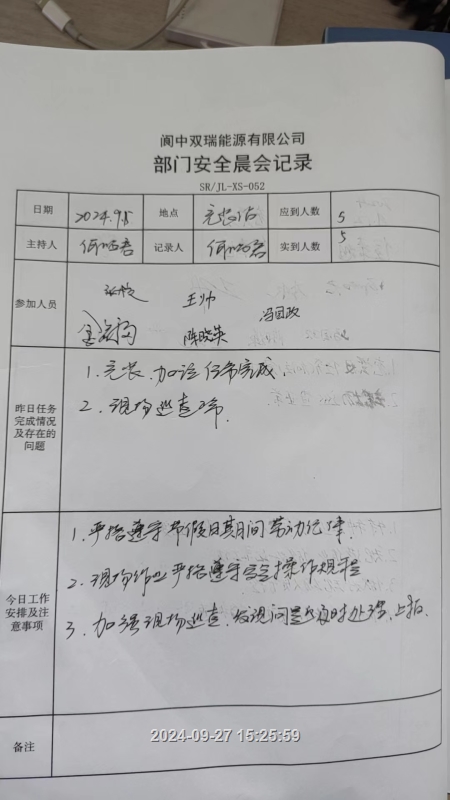 阆中双瑞能源有限公司
部门安全晨会记录
SR/JL-XS-052
日期 2024.9.5 地点 充装站 应到人数 5
主持人 记录人 实到人数 5
参加人员 王帅 冯国政
陈晓英
昨日任务完成情况及存在的问题
1. 充装、加注任务完成.
2. 现场巡查正常.
今日工作安排及注意事项
1. 严格遵守节假日期间劳动纪律.
2. 现场作业严格遵守安全操作规程
3. 加强现场巡查、发现问题及时处理、上报.
备注
2024-09-27 15:25:59